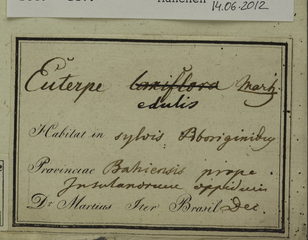 München
14.06.2012
Euterpe laxiflora Mart.
edulis
Habitat in sylvis Aboriginibus
Provinciae Bahiensis prope
oppidum
Dr Martius Iter Brasil Dec.